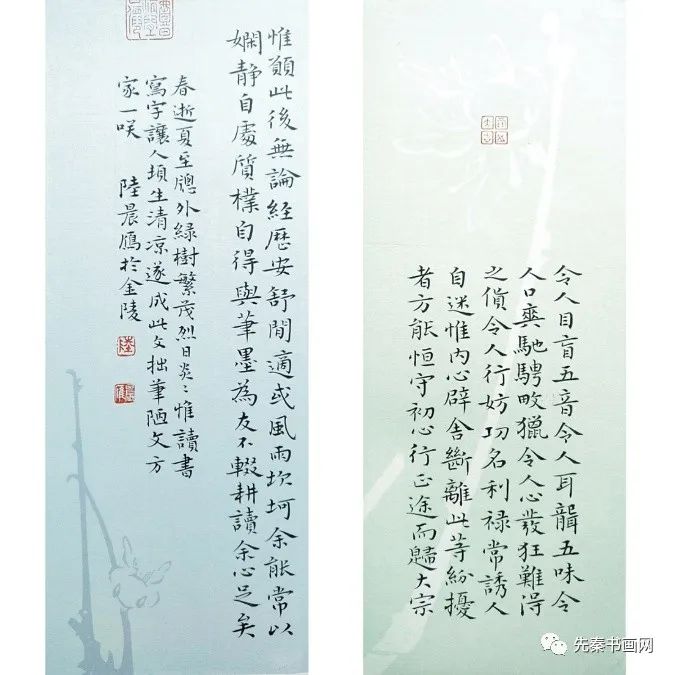 令人目盲五音令人耳聾五味令
人口爽馳騁畋獵令人心發狂難得
之貨令人行妨功名利禄常誘人
自迷惟内心辟舍斷離此等紛擾
者方能恒守初心行正途而歸大宗
惟願此後無論經歷安舒閒適或風雨坎坷余能常以
嫻静自處質樸自得與筆墨為友不輟耕讀余心足矣
春逝夏至牕外緑樹繁茂烈日炎〻惟讀書
寫字讓人頃生清凉遂成此文拙筆陋文方
家一咲 陸晨鴈於金陵
陸
先秦书画网